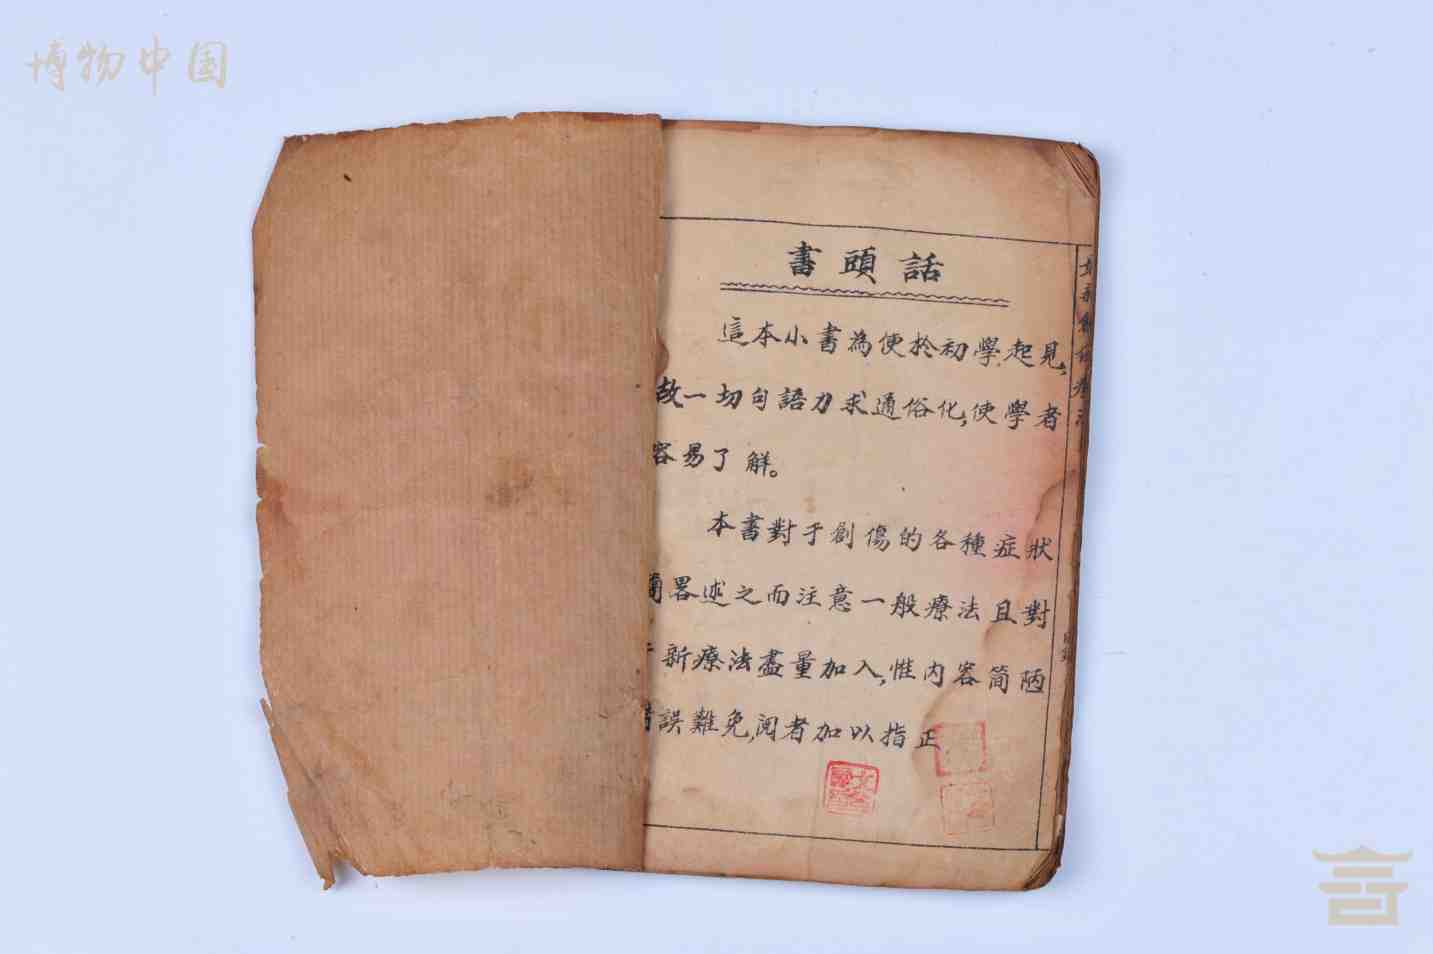 博物中国
書頭話
這本小書為便於初學起見,
故一切句語力求通俗化,使學者
容易了解。
本書對于創傷的各種症狀
簡畧述之而注意一般療法且對
于新療法盡量加入,惟内容简陋
錯誤難免,閲者加以指正